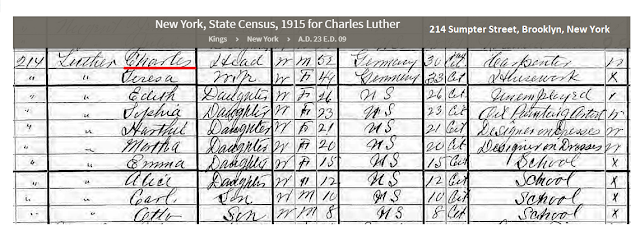 New York, State Census, 1915 for Charles Luther
214 Sumpter Street, Brooklyn, New York
Kings > New York > A.D. 23 E.D. 09
214 Luther Charles Head W M 52 Germany 30 Cit Carpenter W
" " Teresa Wife W F 49 Germany 33 Cit Housework X
" " Edith Daughter W F 26 U S 26 Cit Unemployed
" " Sophia Daughter W F 23 U S 23 Cit Painting Artist W
" " Daughter W F 21 U S 21 Cit Designer on Dresses W
" " Martha Daughter W F 20 U S 20 Cit Designer on Dresses W
" " Emma Daughter W F 15 U S 15 Cit School X
" " Alice Daughter W F 12 U S 12 Cit School X
" " Carl Son W M 10 U S 10 Cit School X
" " Otto Son W M 8 U S 8 Cit School X